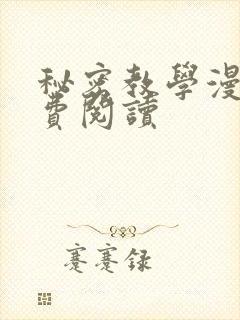 秘密教學漫
費閱讀
蹇蹇録